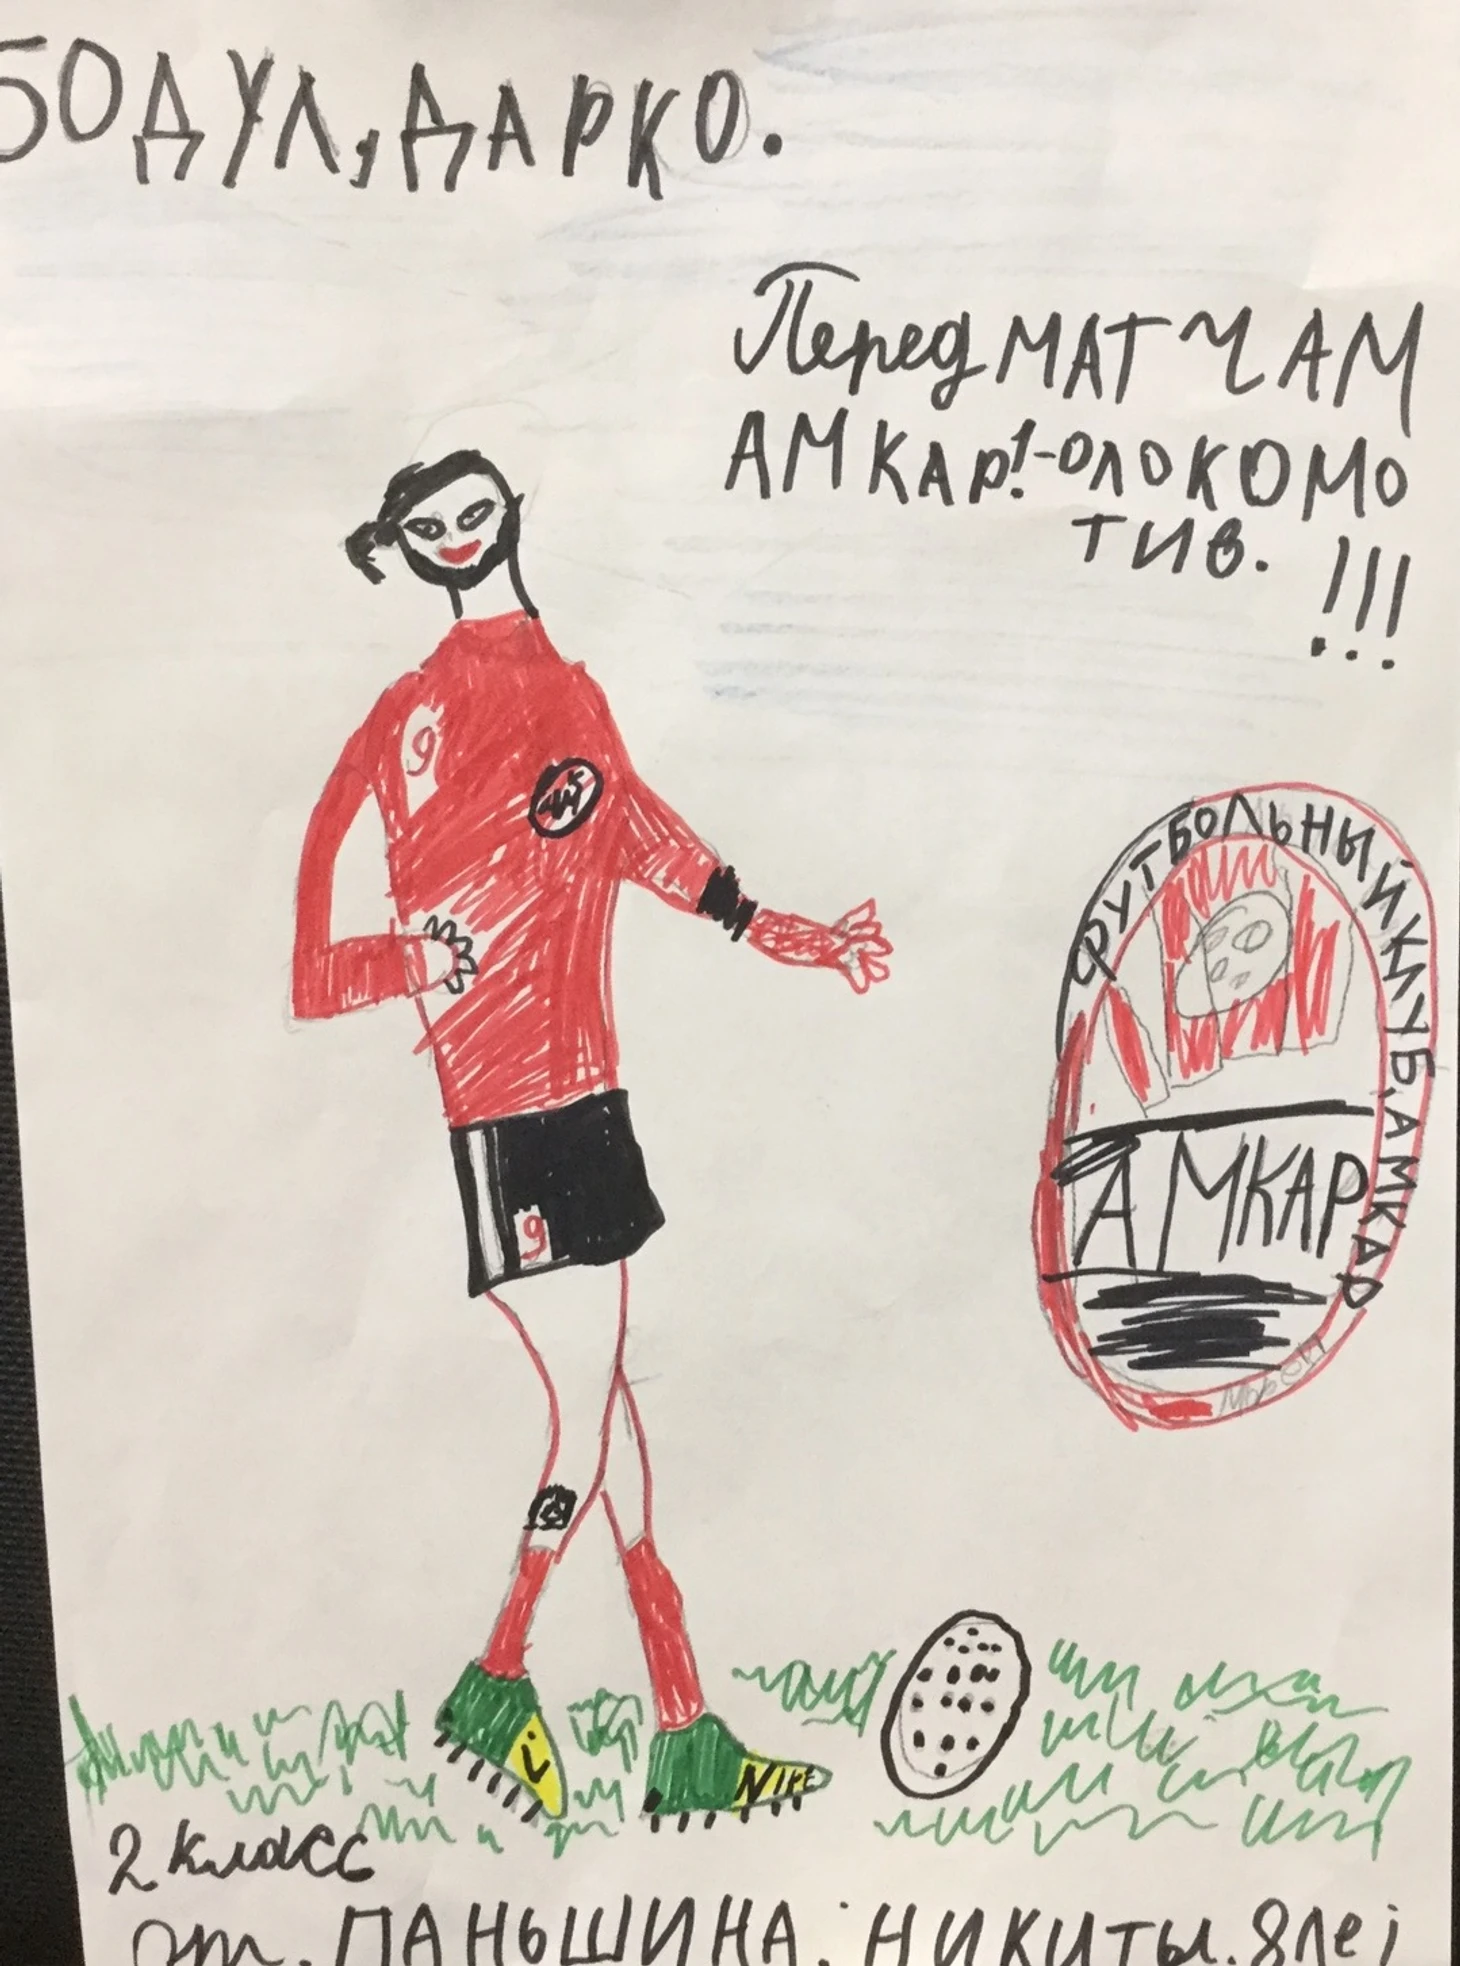 БОДУЛ, ДАРКО.
Перед МАТЧАМ
АМКАР!-ОЛОКОМО
ТИВ.
!!!
9
ФУТБОЛЬНЫЙ КЛУБ, АМКАР
АМКАР
9
NIKE
2 класс
от. ПАНЬШИНА. НИКИТЫ. 8 ле